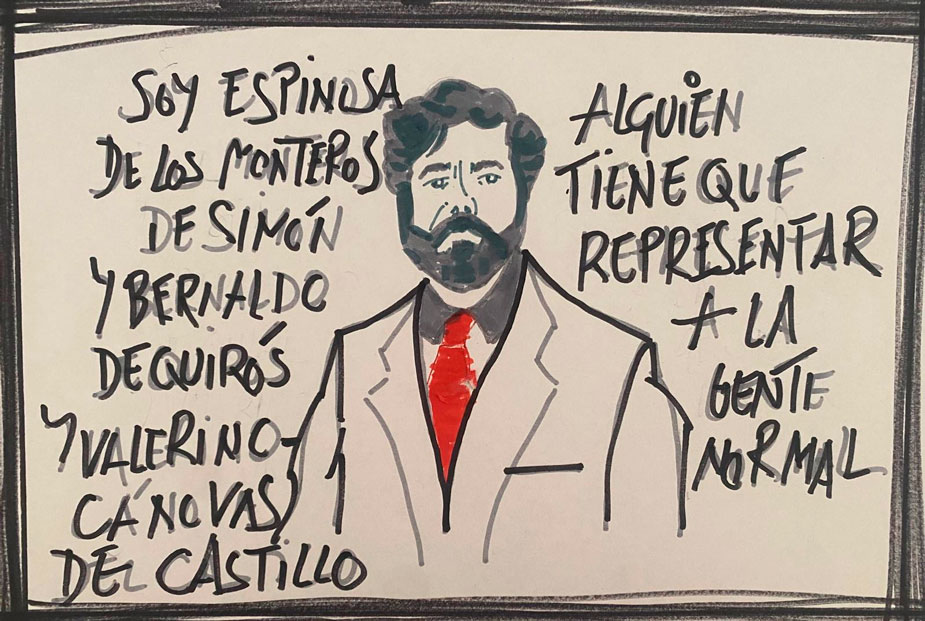 SOY ESPINOSA
DE LOS MONTEROS
DE SIMÓN
Y BERNALDO
DE QUIRÓS
Y VALERINO-
CÁNOVAS
DEL CASTILLO
ALGUIEN
TIENE QUE
REPRESENTAR
A LA
GENTE
NORMAL